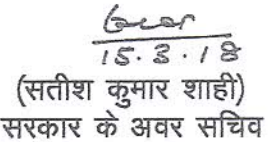 15.3.18
(सतीश कुमार शाही)
सरकार के अवर सचिव